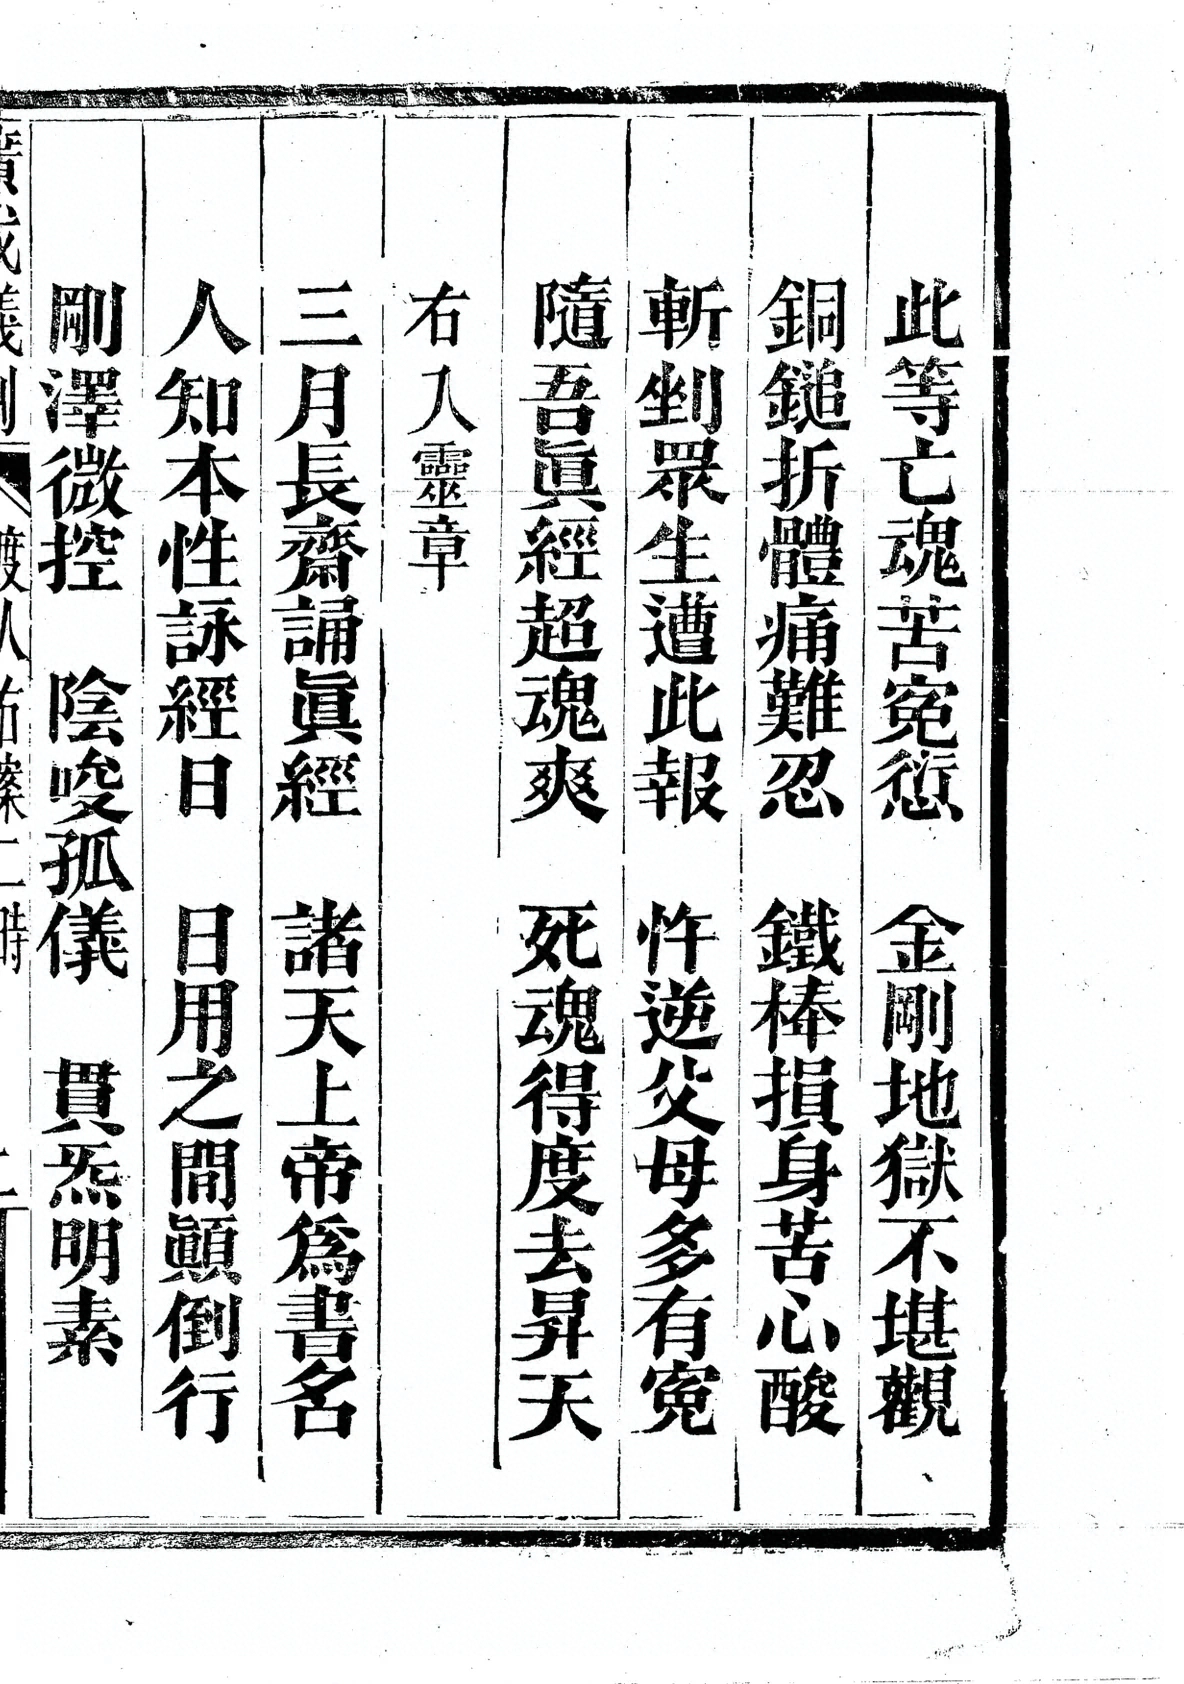 此等亡魂苦寃愆　金剛地獄不堪觀
銅鎚折體痛難忍　鐵棒損身苦心酸
斬剉眾生遭此報　忤逆父母多有寃
隨吾眞經超魂爽　死魂得度去昇天
右入靈章
三月長齋誦眞經　諸天上帝爲書名
人知本性詠經日　日用之間顚倒行
剛澤微控　陰唆孤儀　貫炁明素
廣成儀制